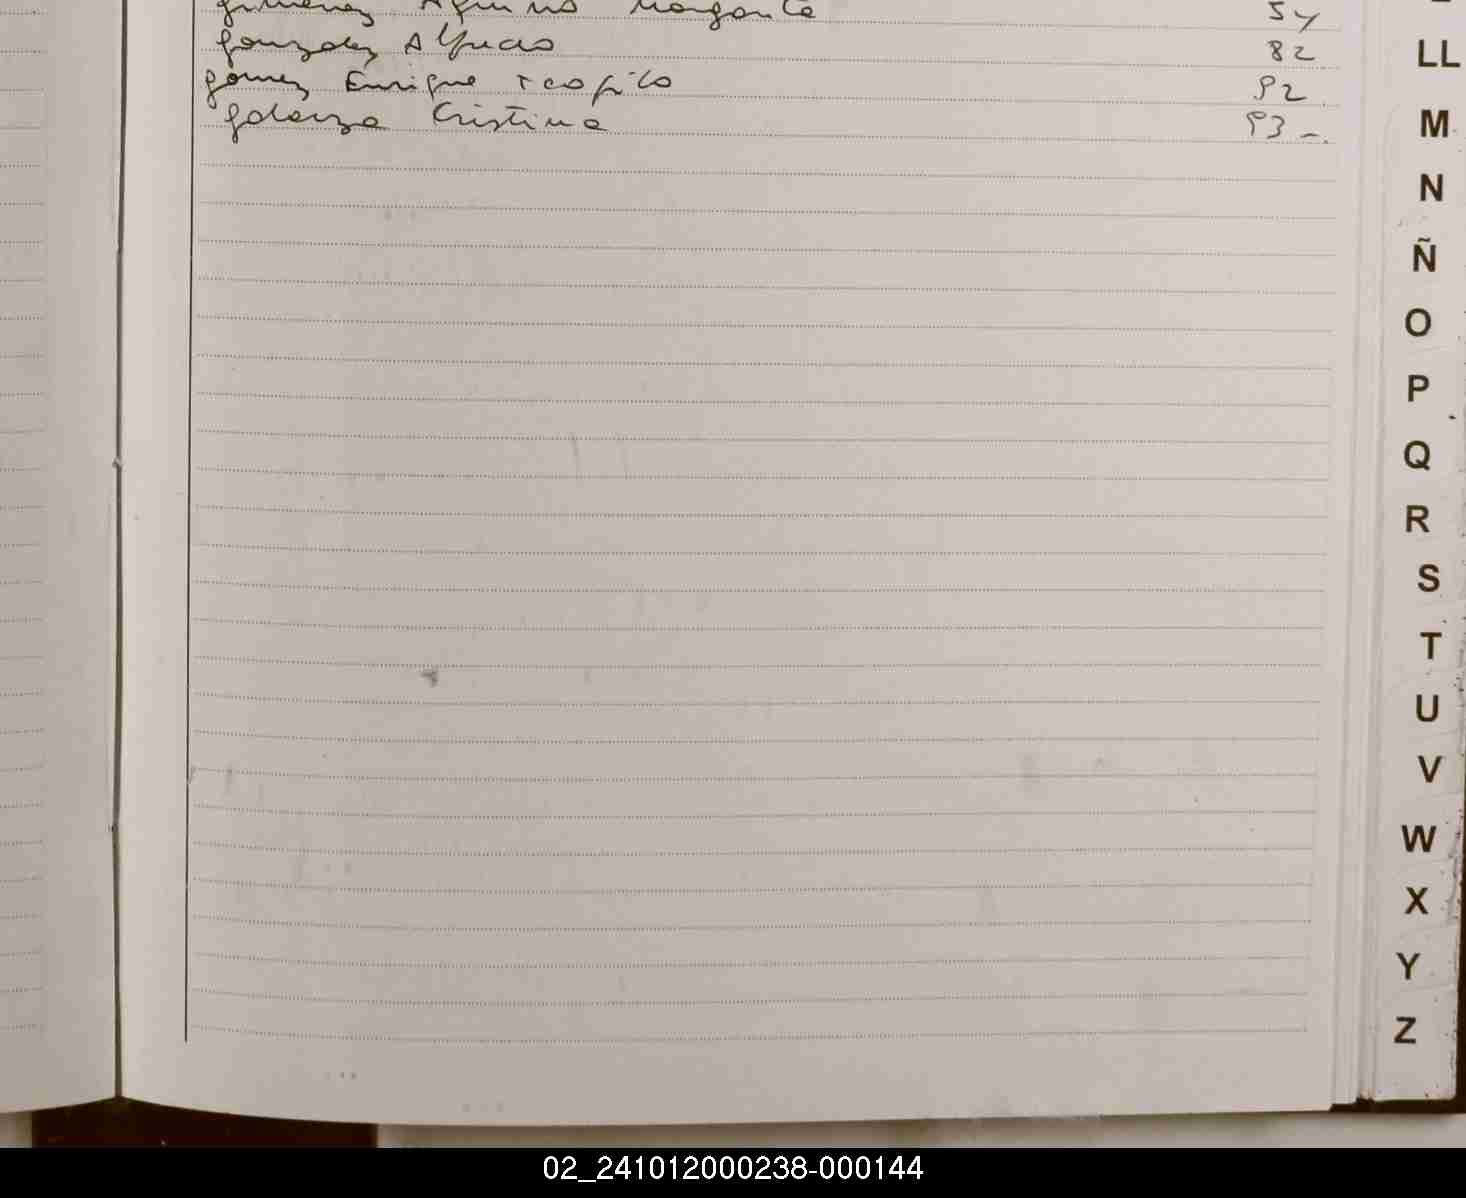 Gimenez Aquino Margarita 54
Gonzalez Alfredo 82
Gomez Enrique Teofilo 92
Galarza Cristina 93 -.
LL
M
N
Ñ
O
P
Q
R
S
T
U
V
W
X
Y
Z
02_241012000238-000144